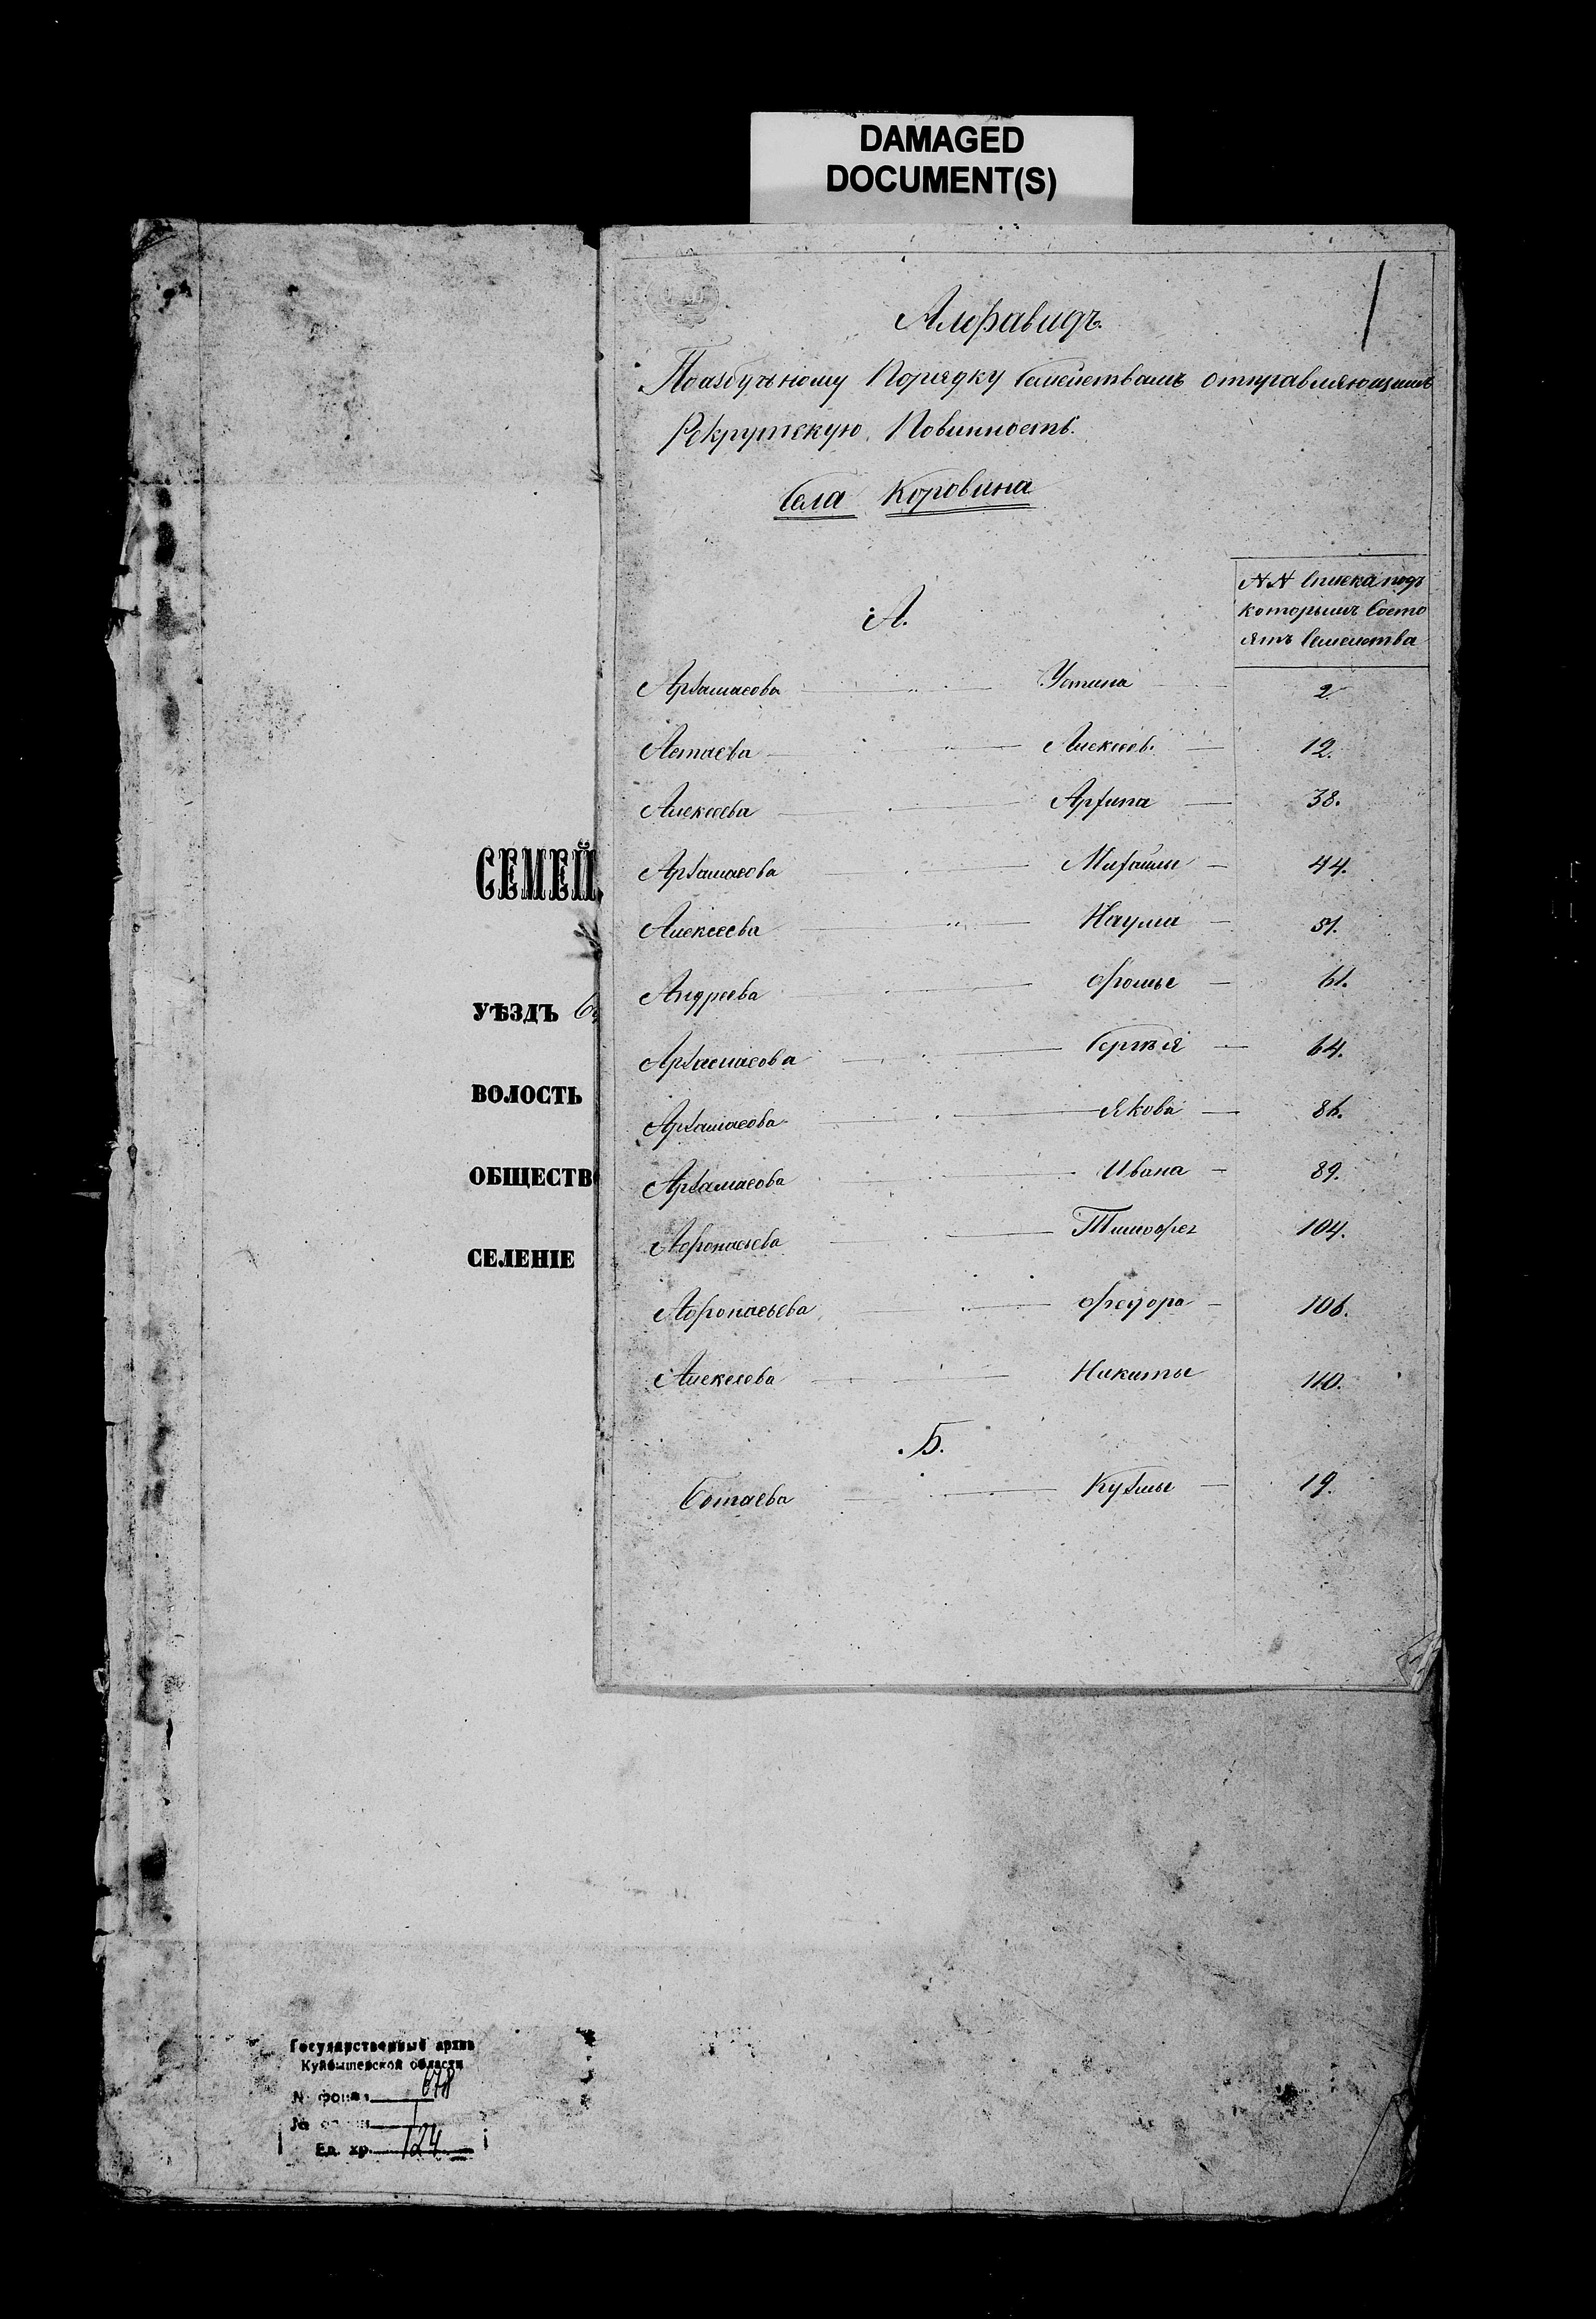 DAMAGED
DOCUMENT(S)
Алфавидъ.
Поазбучному Порядку Семействамъ отправляющимъ
Рекрутскую Повинность.
Села Коровина
NN Списка подъ
которымъ Состо
ятъ Семейства
А.
Арзамасова Устина 2
Астаева Алексѣев. 12.
Алексеева Архипа 38.
Арзамасова Михайлы 44.
Алексеева Наума 51.
Андреева Фомы 61.
Арзамасова Сергѣя 64.
Арзамасова Якова 86.
Арзамасова Ивана 89.
Афонасьева Тимофея 104.
Афонасьева Федора 106.
Алексеева Никиты 110.
Б.
Ботаева Кузмы 19.
СЕМЕЙ
УѢЗДЪ
ВОЛОСТЬ
ОБЩЕСТВ
СЕЛЕНІЕ
Государственный архив
Куйбышевской области
№ фонда 678
№ описи 1
Ед. хр. 124